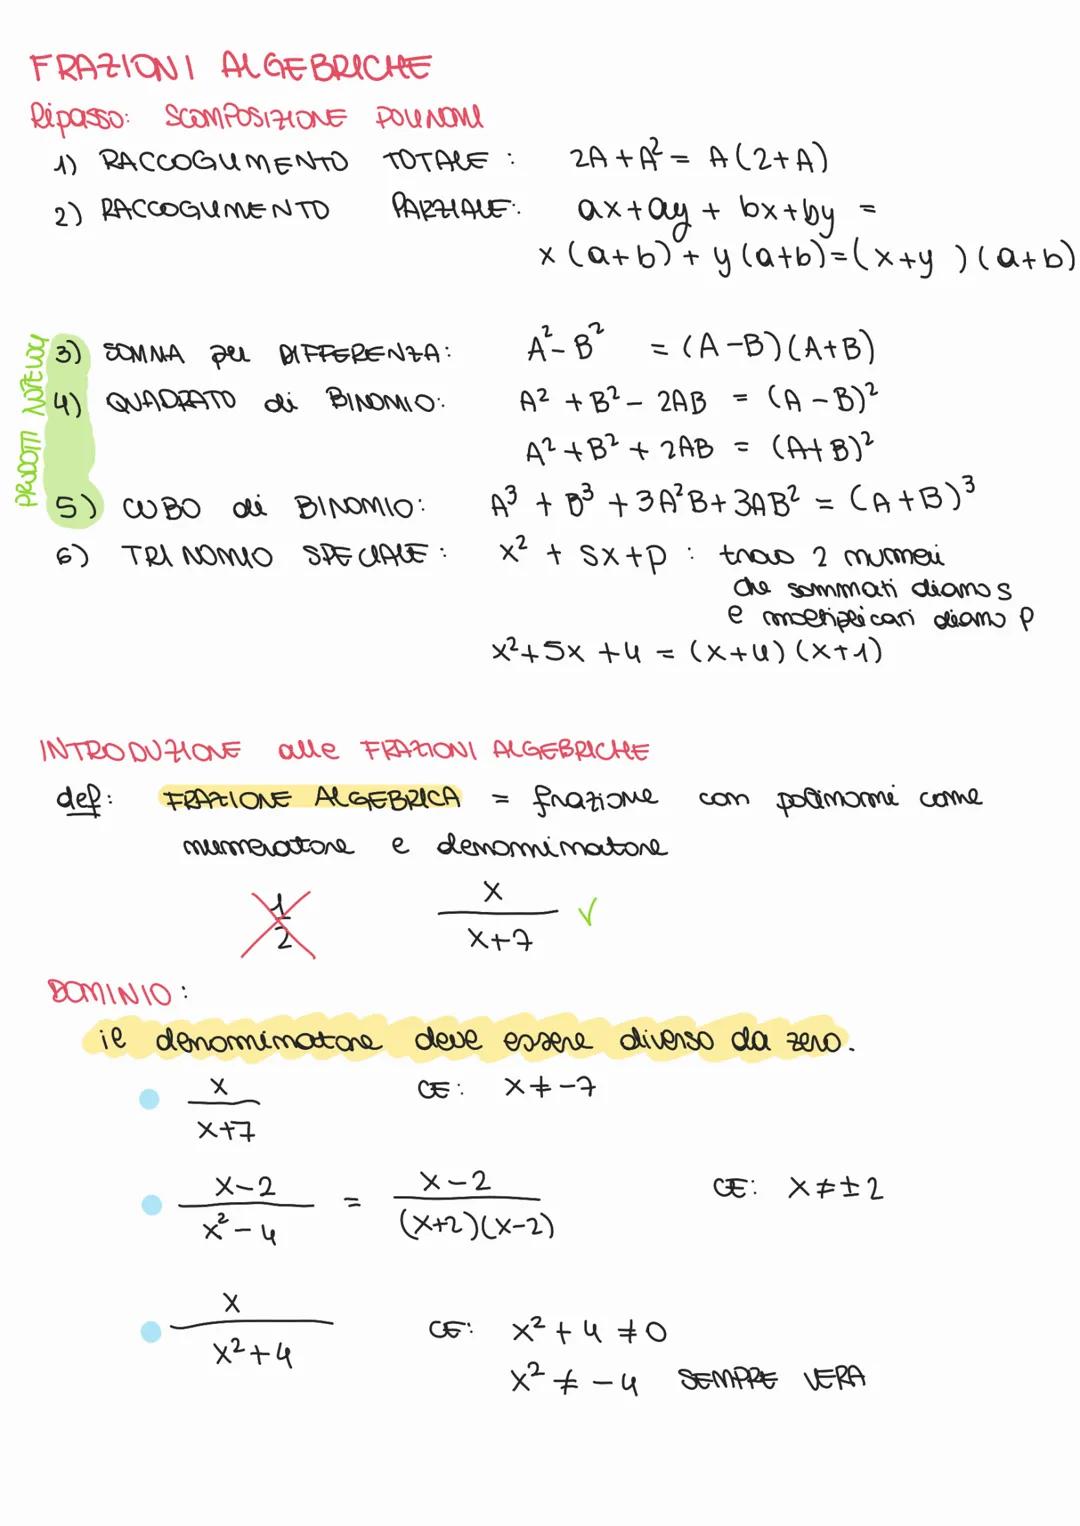 FRAZIONI ALGEBRICHE
Ripasso: SCOMPOSIZIONE POLINOMI
1) RACCOGLIMENTO TOTALE : 2A + A² = A (2+A)
2) RACCOGLIMENTO PARZIALE: ax + ay + bx + by =
x (a+b) + y (a+b) = (x+y) (a+b)
PRODOTTI NOTEVOLI
3) SOMMA per DIFFERENZA: A² - B² = (A-B)(A+B)
4) QUADRATO di BINOMIO: A² + B² - 2AB = (A-B)²
A² + B² + 2AB = (A+B)²
5) CUBO di BINOMIO: A³ + B³ + 3A²B + 3AB² = (A+B)³
6) TRINOMIO SPECIALE : x² + sx + p : trovo 2 numeri
che sommati diano s
e moltiplicati diano p
x² + 5x + 4 = (x+4) (x+1)
INTRODUZIONE alle FRAZIONI ALGEBRICHE
def: FRAZIONE ALGEBRICA = frazione con polinomi come
numeratore e denominatore
1/2 x/(x+7) √
DOMINIO :
il denominatore deve essere diverso da zero.
x/(x+7) CE: x ≠ -7
(x-2)/(x²-4) = (x-2)/((x+2)(x-2)) CE: x ≠ ±2
x/(x²+4) CE: x² + 4 ≠ 0
x² ≠ -4 SEMPRE VERA